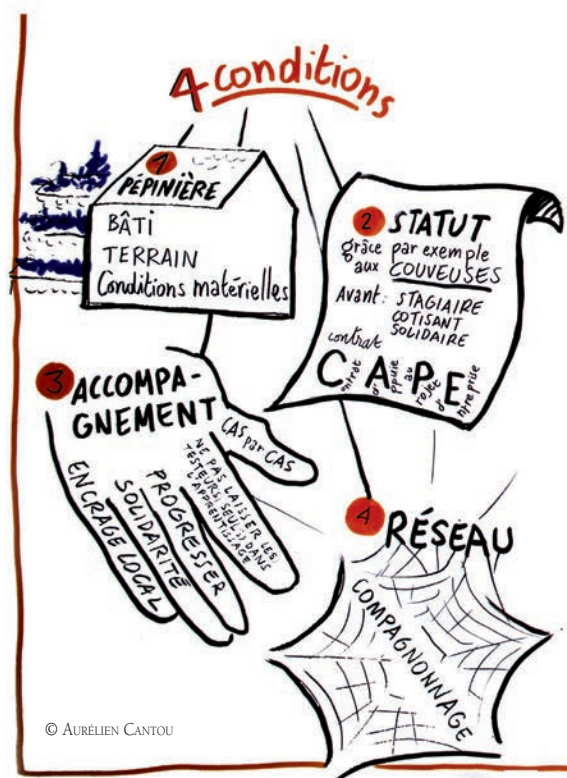 4 conditions
1
PÉPINIÈRE
BÂTI
TERRAIN
Conditions matérielles
2 STATUT
grâce par exemple
aux COUVEUSES
Avant : STAGIAIRE
COTISANT
SOLIDAIRE
contrat
Contrat d'Appuie au Projet d'Entreprise
3 ACCOMPA-
GNEMENT
CAS par CAS
NE PAS LAISSER LES
TESTEURS SEUL(S) DANS
L'APPRENTISSAGE
PROGRESSER
SOLIDARITÉ
ENCRAGE LOCAL
4
RÉSEAU
COMPAGNONNAGE
© AURÉLIEN CANTOU